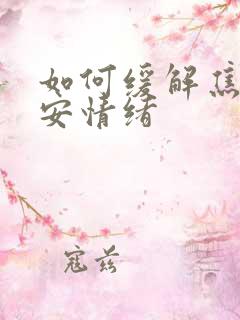 如何缓解焦
安情绪
寇兹